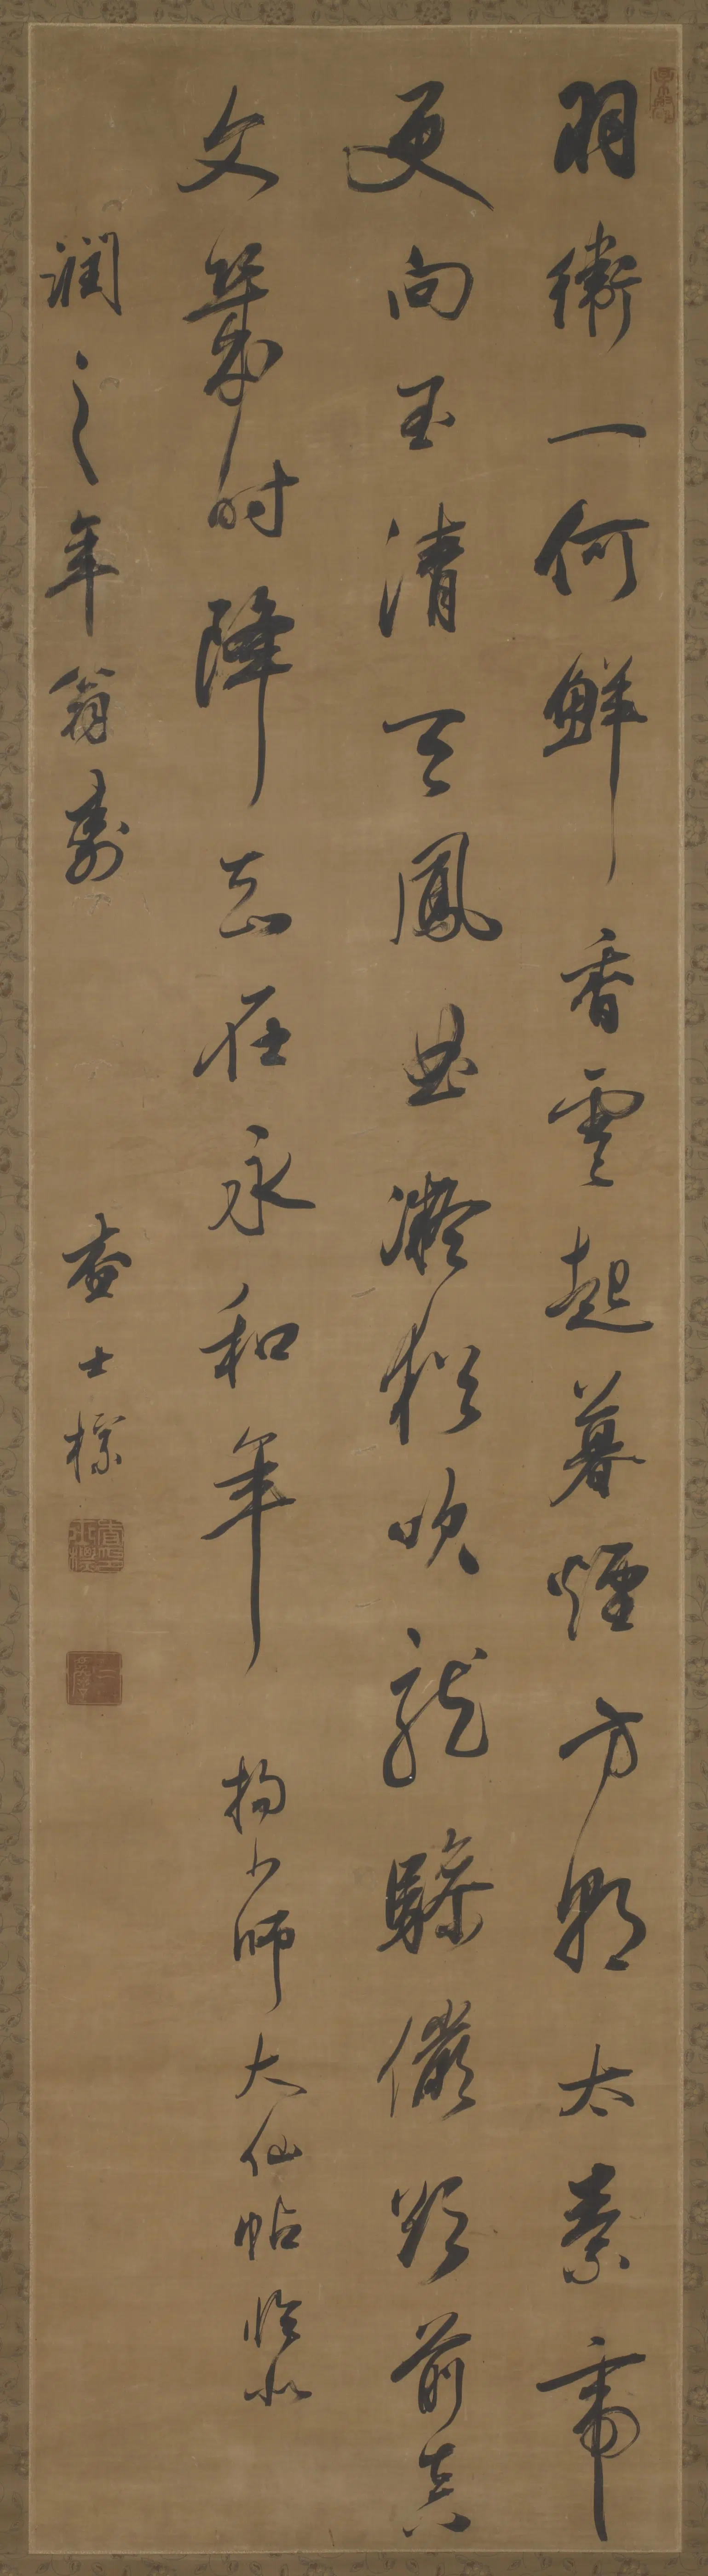 羽衛一何鮮香雲起暮煙方朝太素帝
更向玉清天鳳曲凝猶吹龍驂儼欲前真
文幾時降知在永和年 楊少師大仙帖臨似
潤之年翁壽 查士標